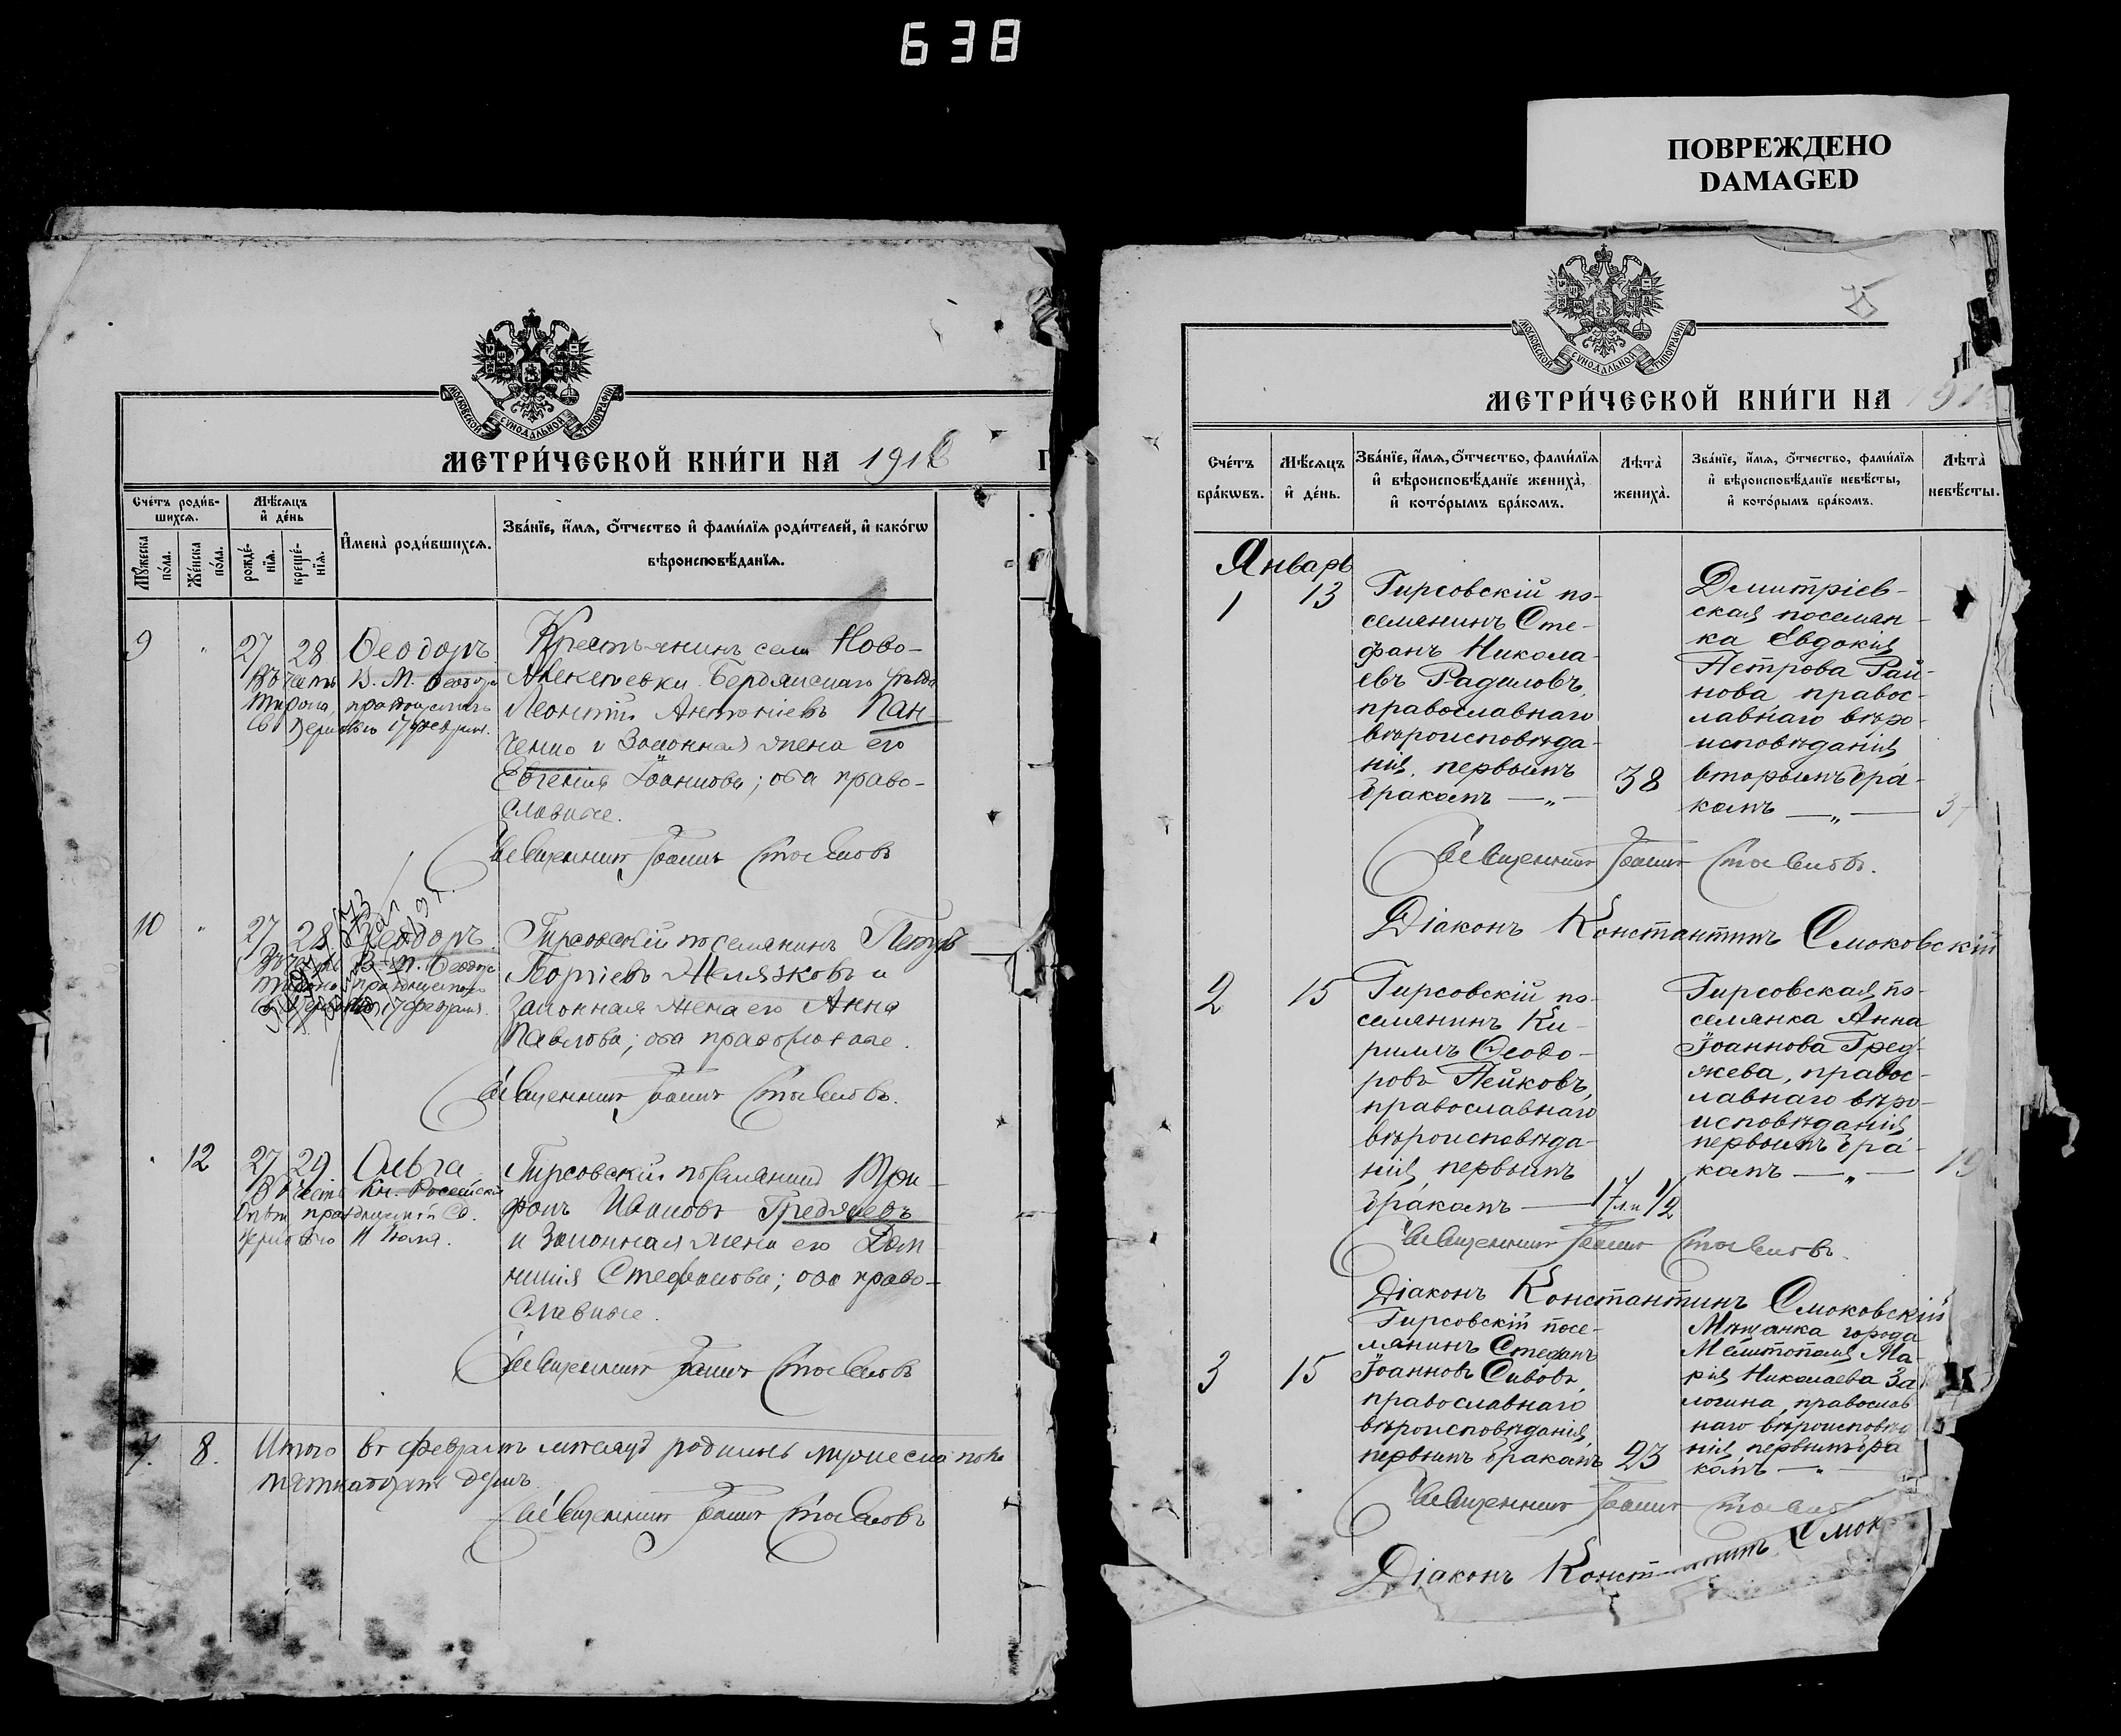 638
ПОВРЕЖДЕНО
DAMAGED
МОСКОВСКОЙ СѴНОДАЛЬНОЙ ТИПОГРАФІИ
МЕТРИ́ЧЕСКОЙ КНИ́ГИ НА 191
Сче́тъ роди́в-
шихсѧ.
Мꙋ́жеска по́ла.
Же́нска по́ла.
Мѣ́сѧцъ и҆ де́нь
рожде́-
нїѧ.
креще́-
нїѧ.
И҆мена̀ роди́вшихсѧ.
Зва́нїе, и҆́мѧ, ѻ҆́тчество и҆ фами́лїѧ роди́телей, и҆ како́гѡ
вѣроисповѣ́данїѧ.
9 " 27 28 Ѳеодоръ. Крестьянинъ села Ново-
Въ честь В. М. Ѳеодора Алексеевки Бердянскаго уѣзда
Тирона, празднуемаго Леонтій Антоніевъ Пан-
Церковію 17 февраля. ченко и Законная жена его
Евгенія Іоаннова; оба право-
славные.
Священникъ Іоаннъ
10 " 27 28 Ѳеодоръ. Гирсовскій поселянинъ Петръ
Георгіевъ Желязковъ и
Законная жена его Анна
17 февраля.
Павлова; оба православные.
Священникъ Іоаннъ
12 27 29 Ольга Гирсовскій поселянинъ Три-
Въ честь Кн. Россійской
фонъ Ивановъ Гредчевъ
Церковію 11 Іюля. и Законная жена его Дом-
никія Стефанова; оба право-
славные.
Священникъ Іоаннъ
7. 8. Итого въ февралѣ мѣсяцѣ родилось мужеска пола
Священникъ Іоаннъ
МОСКОВСКОЙ СѴНОДАЛЬНОЙ ТИПОГРАФІИ
МЕТРИ́ЧЕСКОЙ КНИ́ГИ НА 191
Сче́тъ
бра́кѡвъ.
Мѣ́сѧцъ
и҆ де́нь.
Зва́нїе, и҆́мѧ, ѻ҆́тчество, фами́лїѧ
и҆ вѣроисповѣ́данїе жениха̀,
и҆ кото́рымъ бра́комъ.
Лѣ́та̀
жениха̀.
Зва́нїе, и҆́мѧ, ѻ҆́тчество, фами́лїѧ
и҆ вѣроисповѣ́данїе невѣ́сты,
и҆ кото́рымъ бра́комъ.
Лѣ́та̀
невѣ́сты.
Январь
1 13
Гирсовскій по-
селянинъ Сте-
фанъ Никола-
евъ Радиловъ,
православнаго
вѣроисповѣда-
нія, первымъ
бракомъ — " — 38
Дмитріев-
ская поселян-
ка Евдокія
Петрова Рай-
нова, правос-
лавнаго вѣро-
исповѣданія
вторымъ бра-
комъ — " —
Священникъ Іоаннъ
Діаконъ Константинъ Смоковскій
2 15
Гирсовскій по-
селянинъ Ки-
риллъ Ѳеодо-
ровъ Пейковъ,
православнаго
вѣроисповѣда-
нія, первымъ
бракомъ — 17 л. и 1/2
Гирсовская по-
селянка Анна
Іоаннова Гред-
жева, правос-
лавнаго вѣро-
исповѣданія
первымъ бра-
комъ — " — 19
Священникъ Іоаннъ
Діаконъ Константинъ Смоковскій
3 15
Гирсовскій посе-
лянинъ Стефанъ
Іоанновъ Сивовъ,
православнаго
вѣроисповѣданія,
первымъ бракомъ 23
Мѣщанка города
Мелитополя Ма-
рія Николаева За
логина, православ
наго вѣроисповѣд
нія, первымъ бра
комъ — " —
Священникъ Іоаннъ
Діаконъ Константинъ Смок